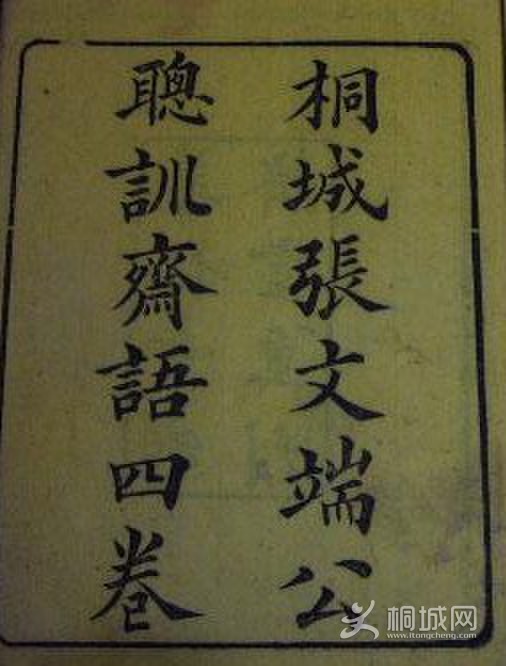 桐城張文端公
聰訓齋語四卷
桐城网
www.itongcheng.com